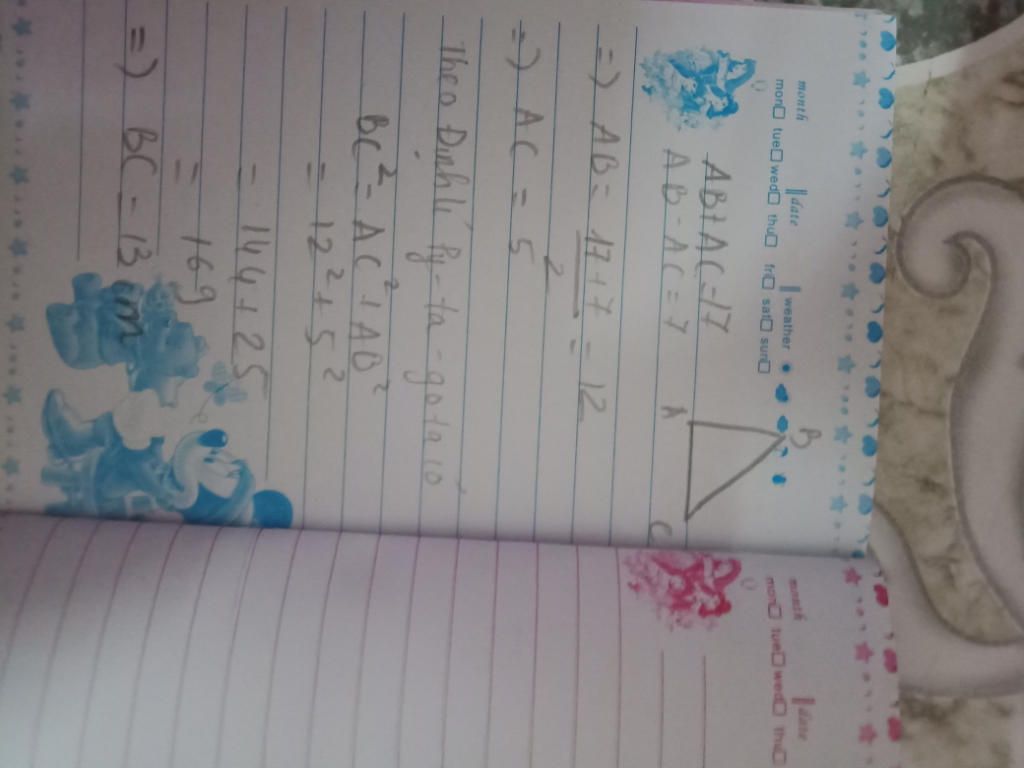 month date weather
mon tue wed thu fri sat sun
AB+AC=17
AB-AC=7
B
A
C
=) AB= 17+7 = 12
2
=) AC = 5
Theo Định lí Py-ta-go ta có
BC² = AC² + AB²
= 12² + 5²
= 144 + 25
= 169
=) BC = 13 cm
month date
mon tue wed thu